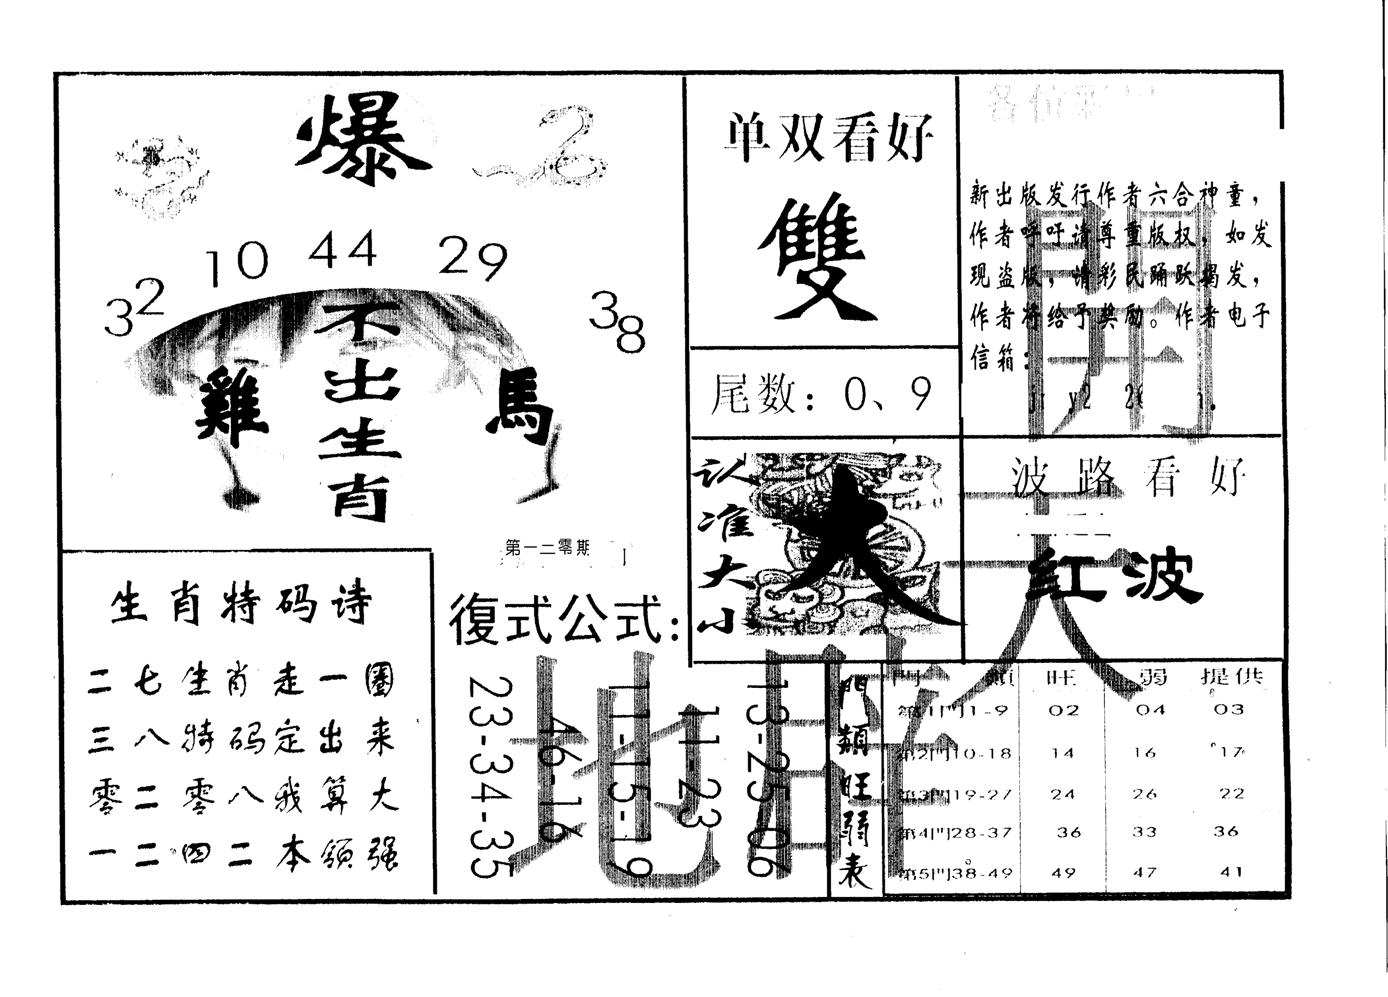 爆
32 10 44 29 38
不出生肖
雞 馬
第一二零期
单双看好
雙
尾数：0、9
新出版发行作者六合神童，
作者呼吁请尊重版权，如发
现盗版，请彩民踊跃揭发，
作者将给予奖励。作者电子
信箱：
认准大小
大
波路看好
红波
生肖特码诗
二七生肖走一圈
三八特码定出来
零二零八我算大
一二四二本领强
復式公式:
13-25-06
11-23
11-15-19
46-16
23-34-35
門類旺弱表
門 類 旺 弱 提供
第1門1-9 02 04 03
第2門10-18 14 16 17
第3門19-27 24 26 22
第4門28-37 36 33 36
第5門38-49 49 47 41